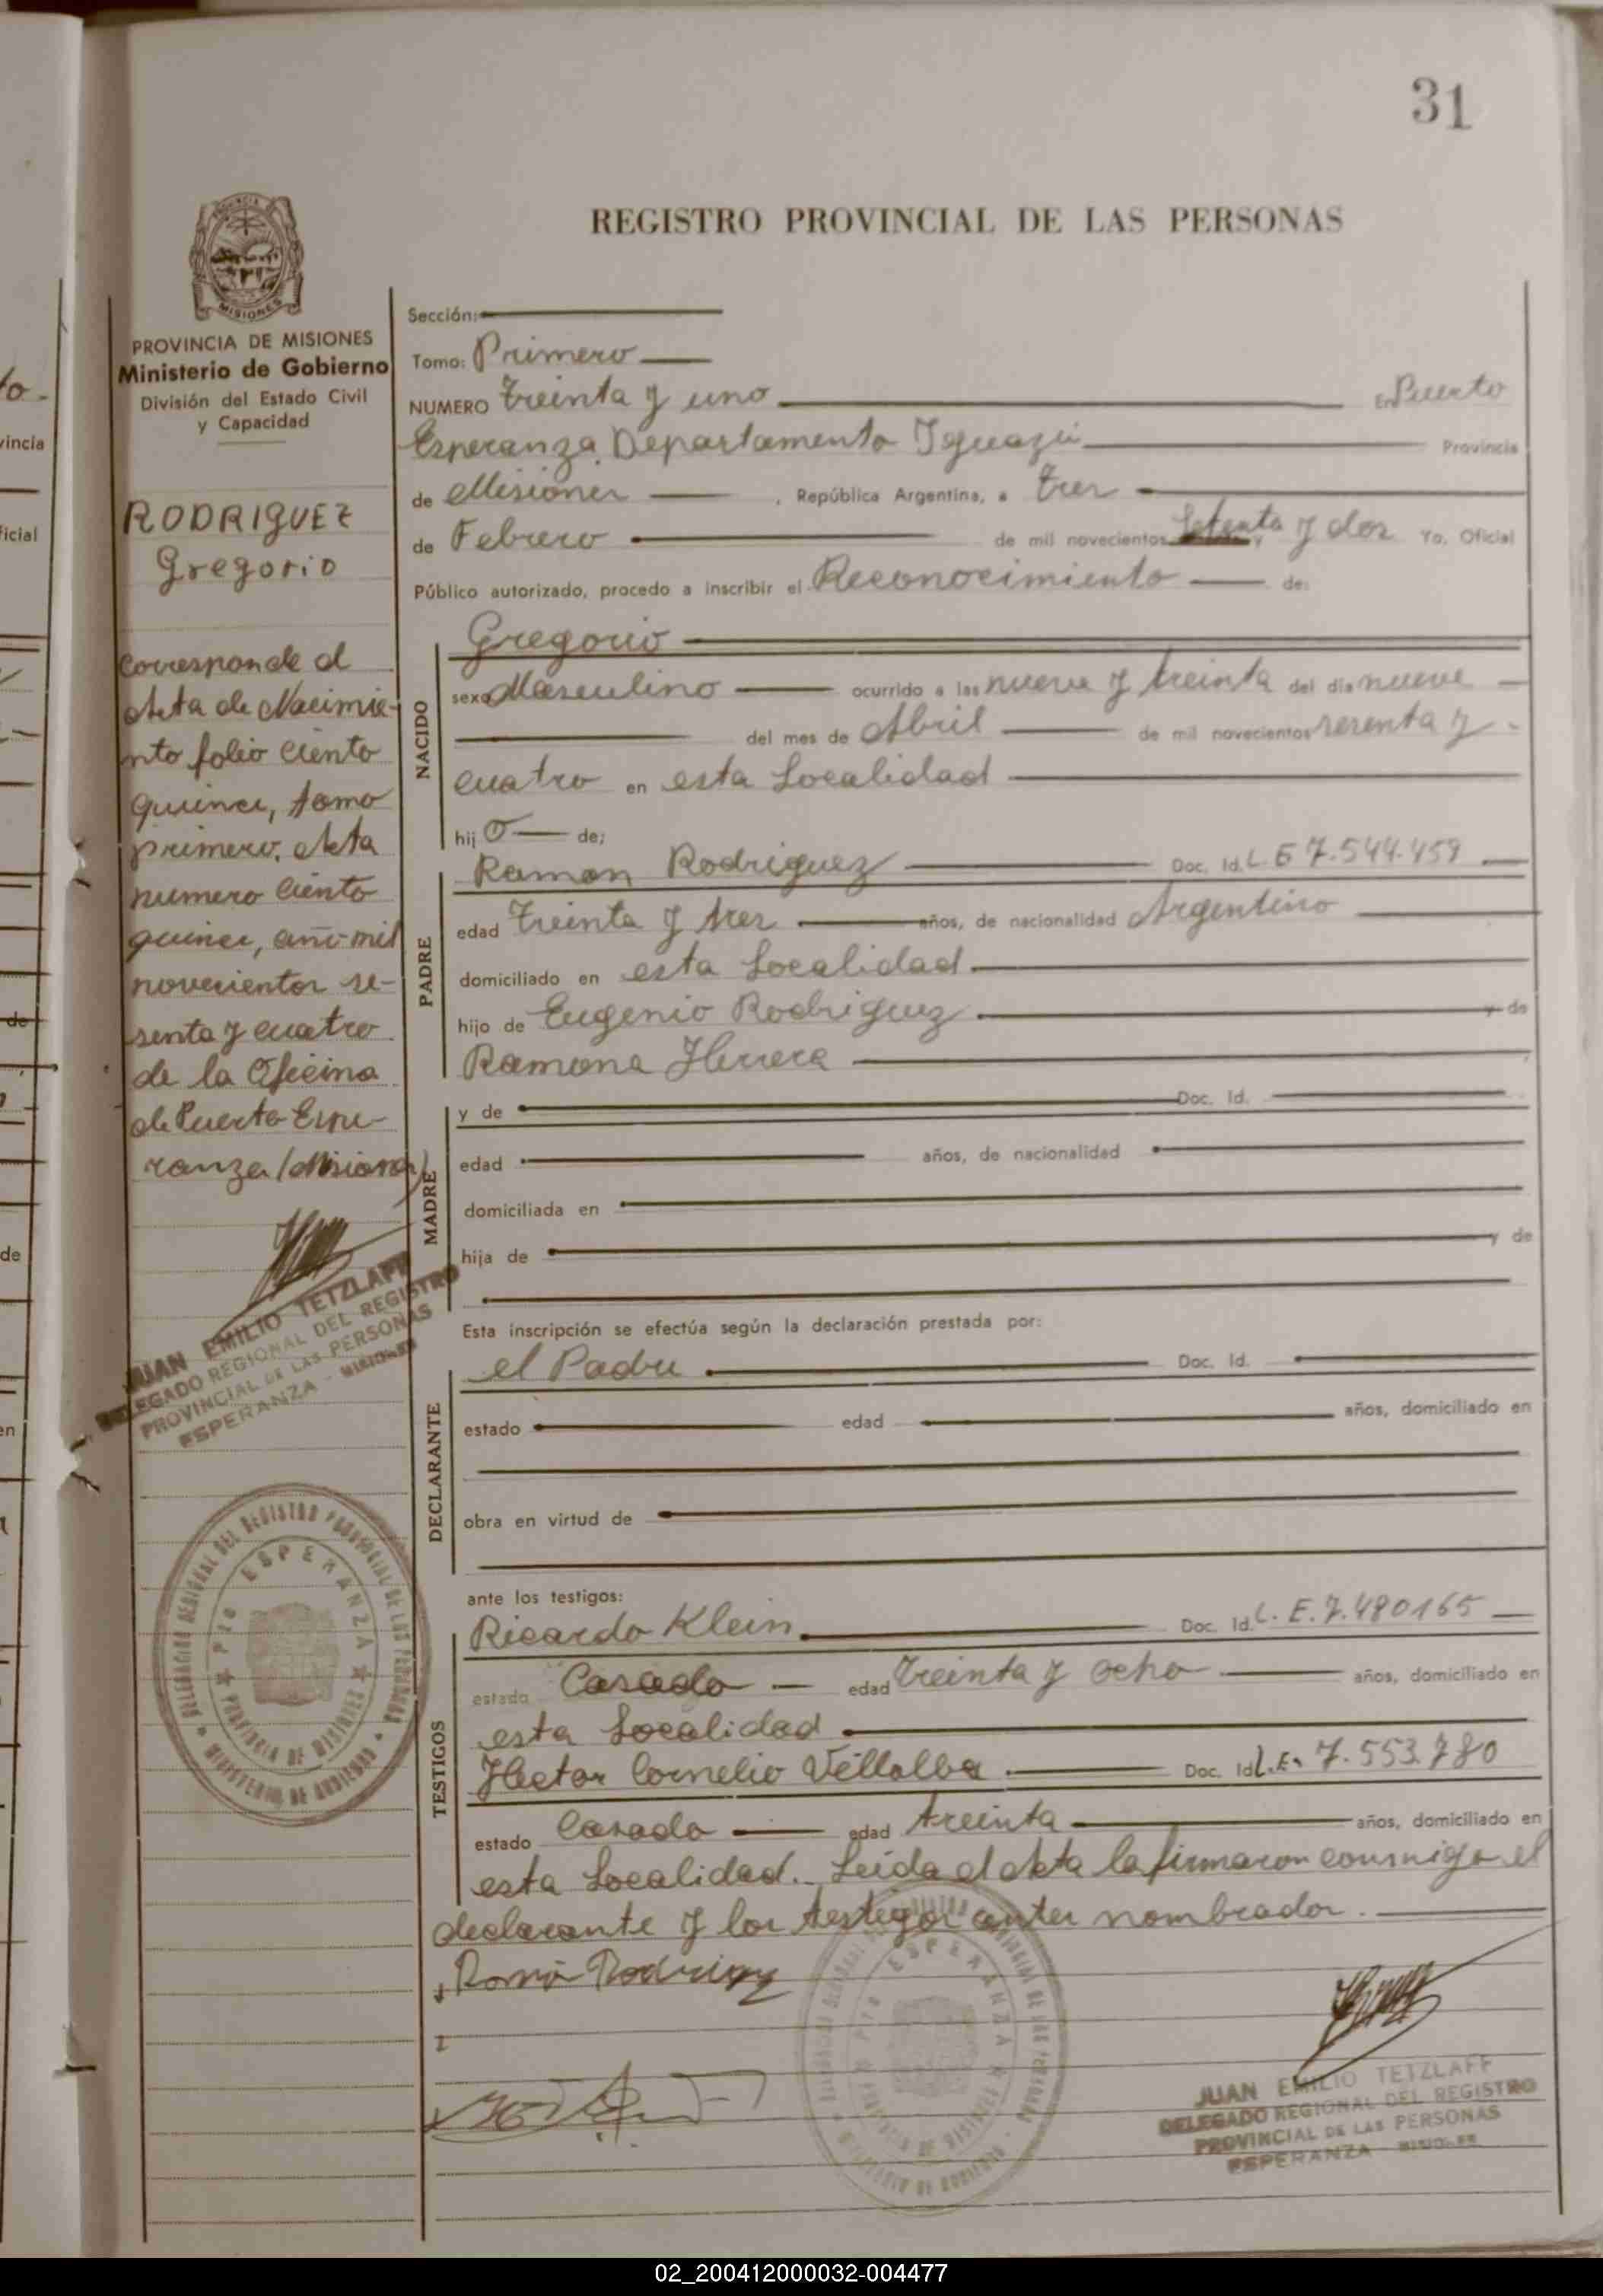 31
REGISTRO PROVINCIAL DE LAS PERSONAS
MISIONES
PROVINCIA DE MISIONES
Ministerio de Gobierno
División del Estado Civil
y Capacidad
RODRIGUEZ
Gregorio
Corresponde al
Acta de Nacimie-
nto folio ciento
quince, tomo
primero, Acta
numero ciento
quince, año mil
novecientos se-
senta y cuatro
de la Oficina
de Puerto Espe-
ranza (Misiones)
JUAN EMILIO TETZLAFF
DELEGADO REGIONAL DEL REGISTRO
PROVINCIAL DE LAS PERSONAS
ESPERANZA - MISIONES
DELEGACION REGIONAL DEL REGISTRO PROVINCIAL DE LAS PERSONAS
MINISTERIO DE GOBIERNO
Pto ESPERANZA
PROVINCIA DE MISIONES
Sección:
Tomo: Primero
NUMERO Treinta y uno En Puerto
Esperanza Departamento Iguazú Provincia
de Misiones , República Argentina, a tres
de Febrero de mil novecientos setenta y dos Yo, Oficial
Público autorizado, procedo a inscribir el Reconocimiento de:
NACIDO
Gregorio
sexo Masculino ocurrido a las nueve y treinta del día nueve
del mes de Abril de mil novecientos sesenta y
cuatro en esta Localidad
hij o de;
PADRE
Ramon Rodriguez Doc. Id. L E 7.544.459
edad Treinta y tres años, de nacionalidad Argentino
domiciliado en esta Localidad.
hijo de Eugenio Rodriguez y de
Ramona Herrera
MADRE
y de Doc. Id.
edad años, de nacionalidad
domiciliada en
hija de y de
Esta inscripción se efectúa según la declaración prestada por:
DECLARANTE
el Padre Doc. Id.
estado edad años, domiciliado en
obra en virtud de
ante los testigos:
TESTIGOS
Ricardo Klein Doc. Id. L. E. 7.480165
estado Casado edad treinta y ocho años, domiciliado en
esta Localidad
Hector Cornelio Villalba Doc. Id L.E. 7.553.780
estado Casado edad treinta años, domiciliado en
esta Localidad. Leída el Acta la firmaron conmigo el
declarante y los testigos antes nombrados.
Ramón Rodriguez
JUAN EMILIO TETZLAFF
DELEGADO REGIONAL DEL REGISTRO
PROVINCIAL DE LAS PERSONAS
ESPERANZA - MISIONES
02_200412000032-004477